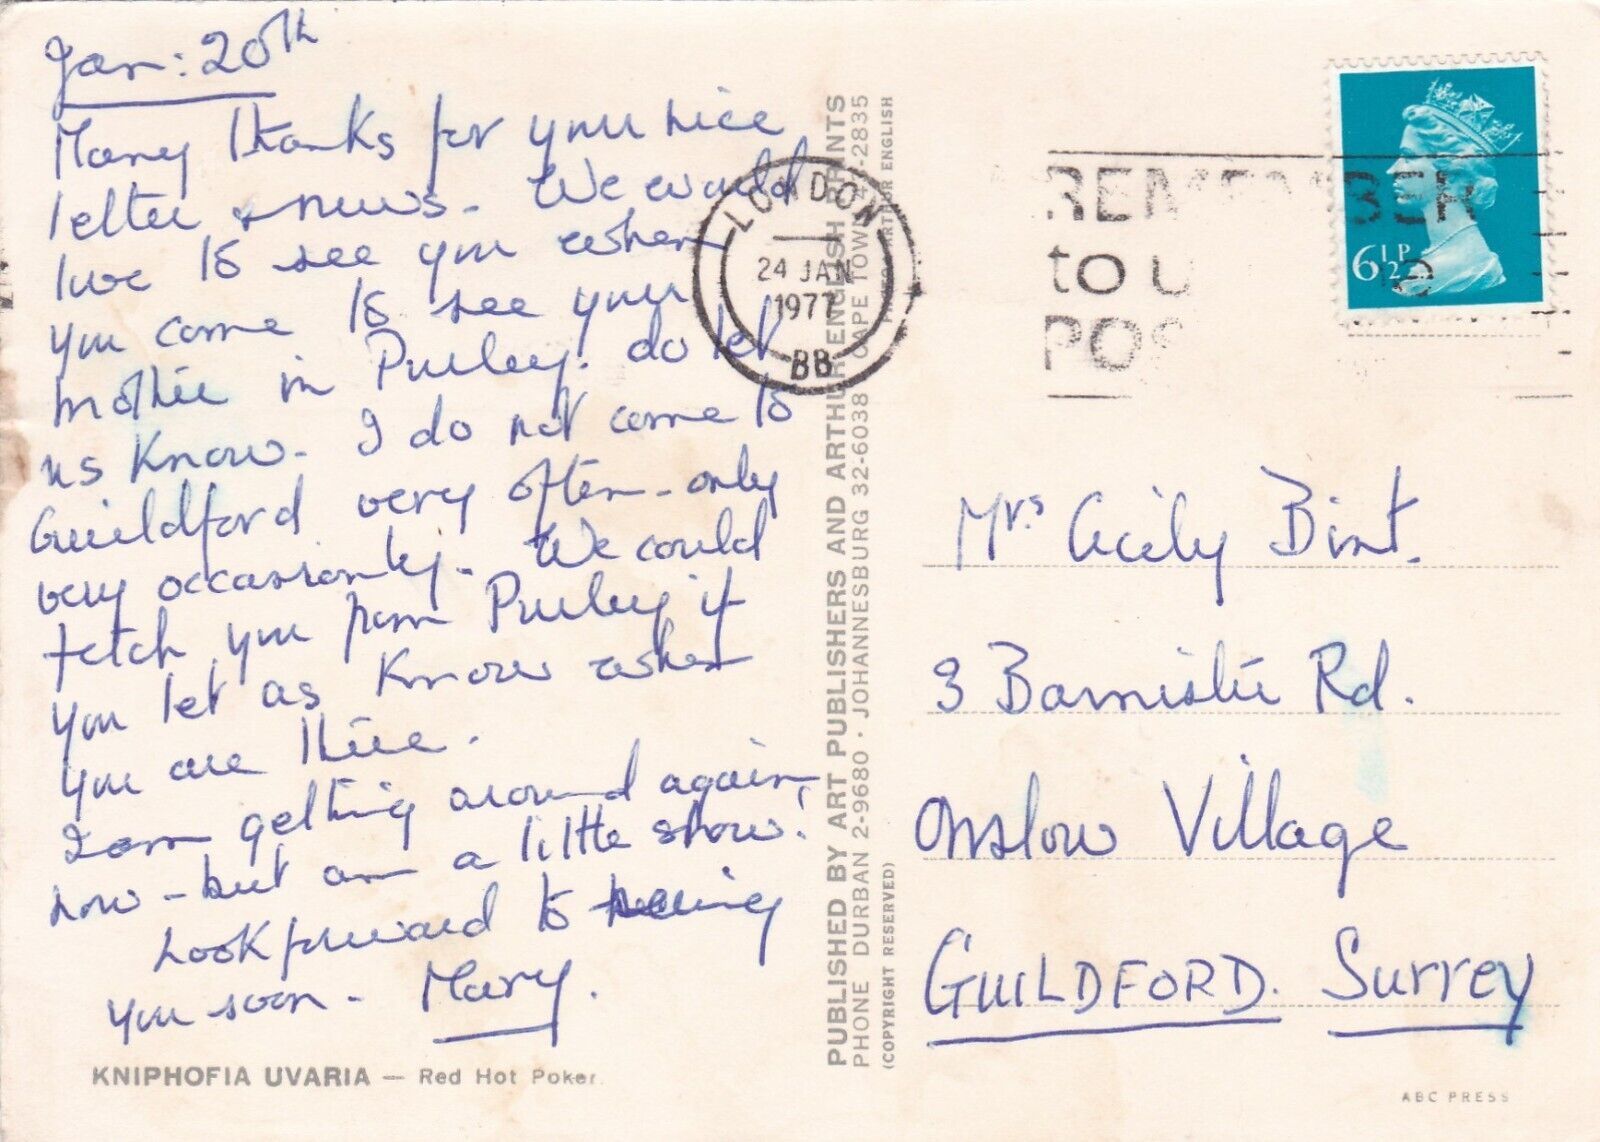 Jan: 20th
Many thanks for your nice
letter & news. We would
love to see you when
you come to see your
mother in Purley. do let
us know. I do not come to
Guildford very often - only
very occasionly. We could
fetch you from Purley if
you let us know when
you are there.
I am getting around again
now - but am a little slow!
Look forward to seeing
you soon - Mary.
KNIPHOFIA UVARIA — Red Hot Poker.
PUBLISHED BY ART PUBLISHERS AND ARTHUR ENGLISH PRINTS
PHONE DURBAN 2-9680 · JOHANNESBURG 32-6038 CAPE TOWN 2835
(COPYRIGHT RESERVED)
ENGLISH
LONDON
24 JAN
1977
BB
REMEMBER
to
6½P
Mrs Cicily Bint.
3 Bannister Rd.
Onslow Village
GUILDFORD. Surrey
ABC PRESS